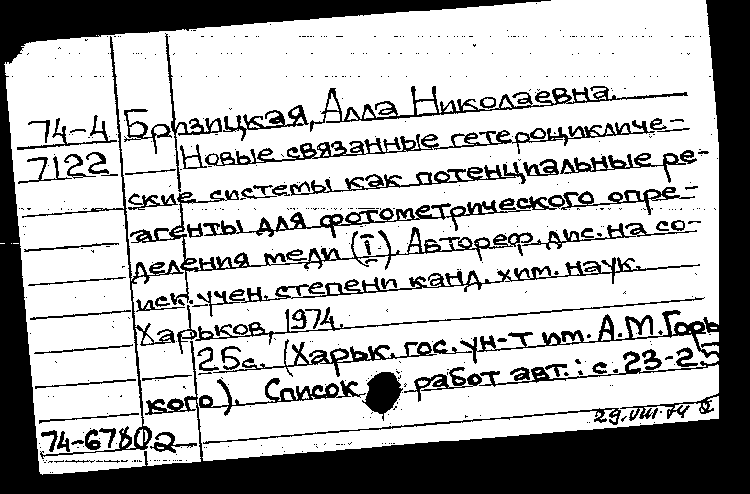 74-4 Бризицкая, Алла Николаевна.
7122 Новые связанные гетероцикличе-
ские системы как потенциальные ре-
агенты для фотометрического опре-
деления меди (I). Автореф. дис. на со-
иск. учен. степени канд. хим. наук.
Харьков, 1974.
25с. (Харьк. гос. ун-т им. А.М.Горь
кого). Список работ авт.: с. 23-25
29.VIII.74
74-67802